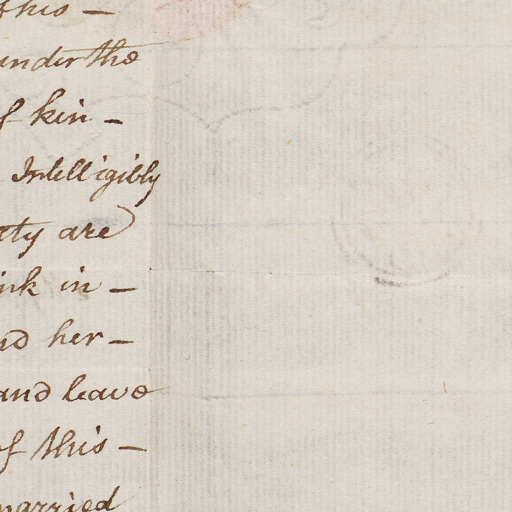 this –
under the
of kin –
Intelligibly
are
in –
her –
and leave
of this –
married